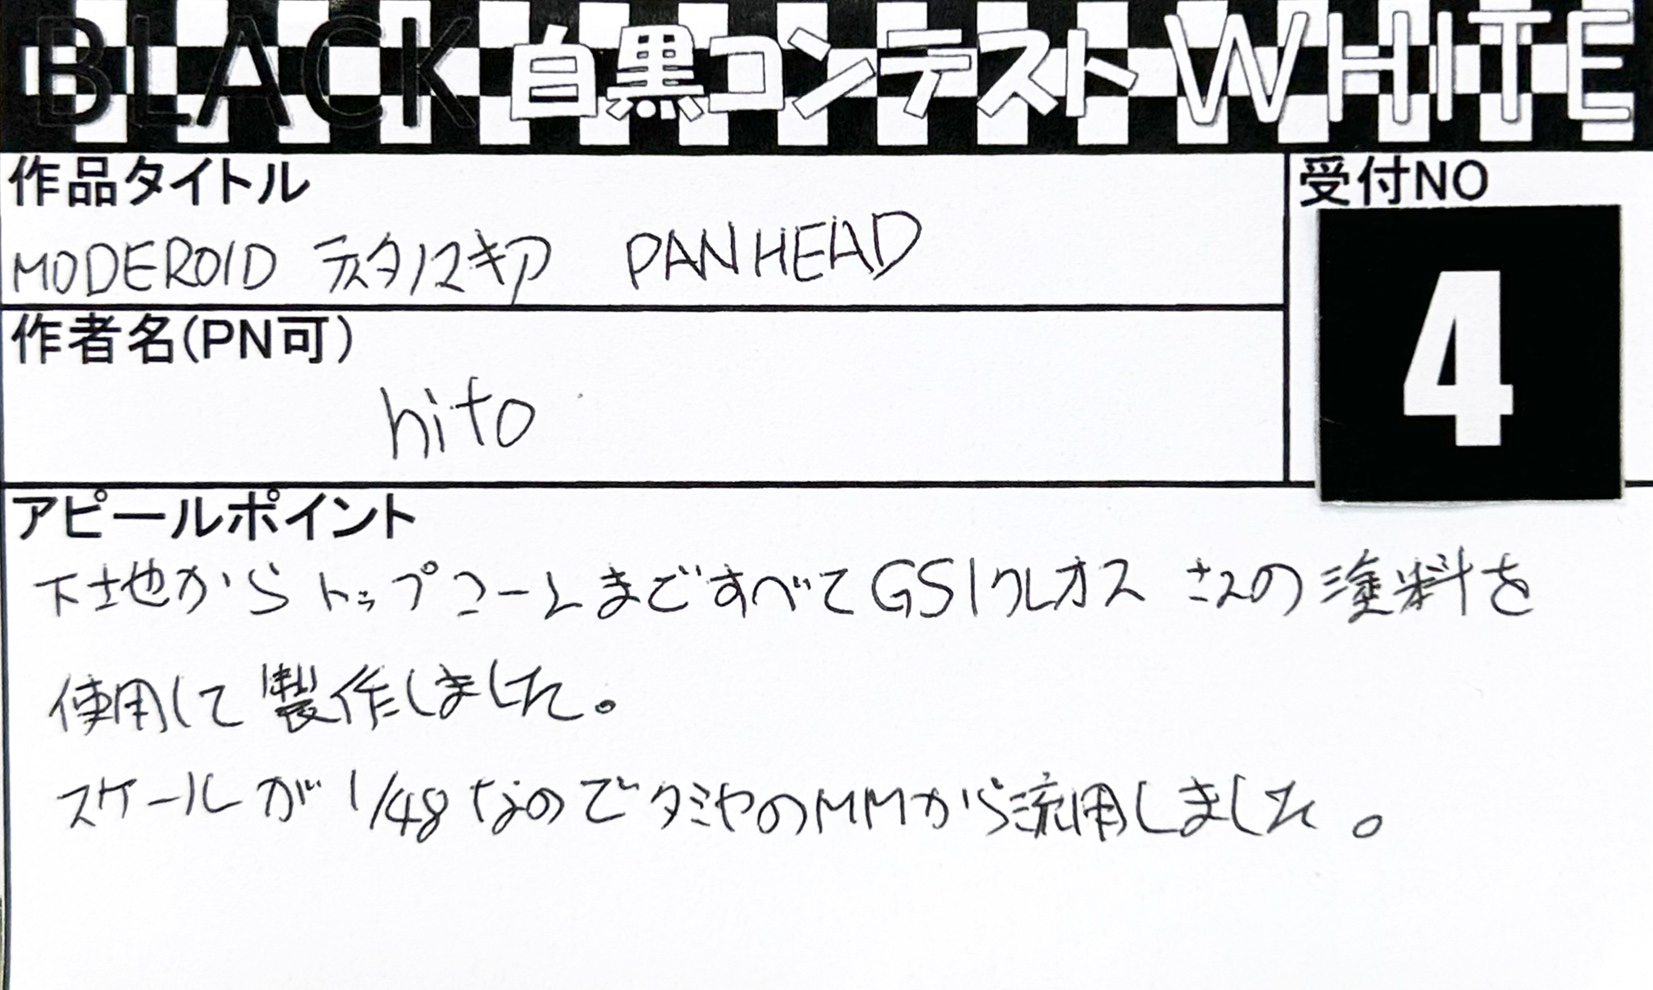 BLACK 白黒コンテスト WHITE
作品タイトル
MODEROID テスタノマキア PANHEAD
受付NO
4
作者名(PN可)
hito
アピールポイント
下地からトップコートまですべてGSIクレオスさんの塗料を
使用して製作しました。
スケールが1/48なのでタミヤのMMから流用しました。